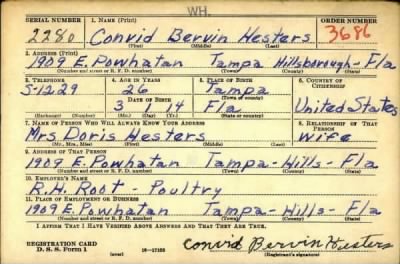 WH.
SERIAL NUMBER 1. NAME (Print) ORDER NUMBER
2280 Convid Bervin Hesters 3686
(First) (Middle) (Last)
2. ADDRESS (Print)
1909 E. Powhatan Tampa Hillsborough-Fla
(Number and street or R. F. D. number) (Town) (County) (State)
3. TELEPHONE 4. AGE IN YEARS 5. PLACE OF BIRTH 6. COUNTRY OF CITIZENSHIP
S-1229 26 Tampa
DATE OF BIRTH (Town or county)
3 1 14 Fla United States
(Exchange) (Number) (Mo.) (Day) (Yr.) (State or country)
7. NAME OF PERSON WHO WILL ALWAYS KNOW YOUR ADDRESS 8. RELATIONSHIP OF THAT PERSON
Mrs Doris Hesters Wife
(Mr., Mrs., Miss) (First) (Middle) (Last)
9. ADDRESS OF THAT PERSON
1909 E. Powhatan Tampa-Hills-Fla
(Number and street or R. F. D. number) (Town) (County) (State)
10. EMPLOYER'S NAME
R.H. Root - Poultry
11. PLACE OF EMPLOYMENT OR BUSINESS
1909 E. Powhatan Tampa-Hills-Fla
(Number and street or R. F. D. number) (Town) (County) (State)
I AFFIRM THAT I HAVE VERIFIED ABOVE ANSWERS AND THAT THEY ARE TRUE.
REGISTRATION CARD
D. S. S. Form 1 16-17105 Convid Bervin Hesters
(Registrant's signature)